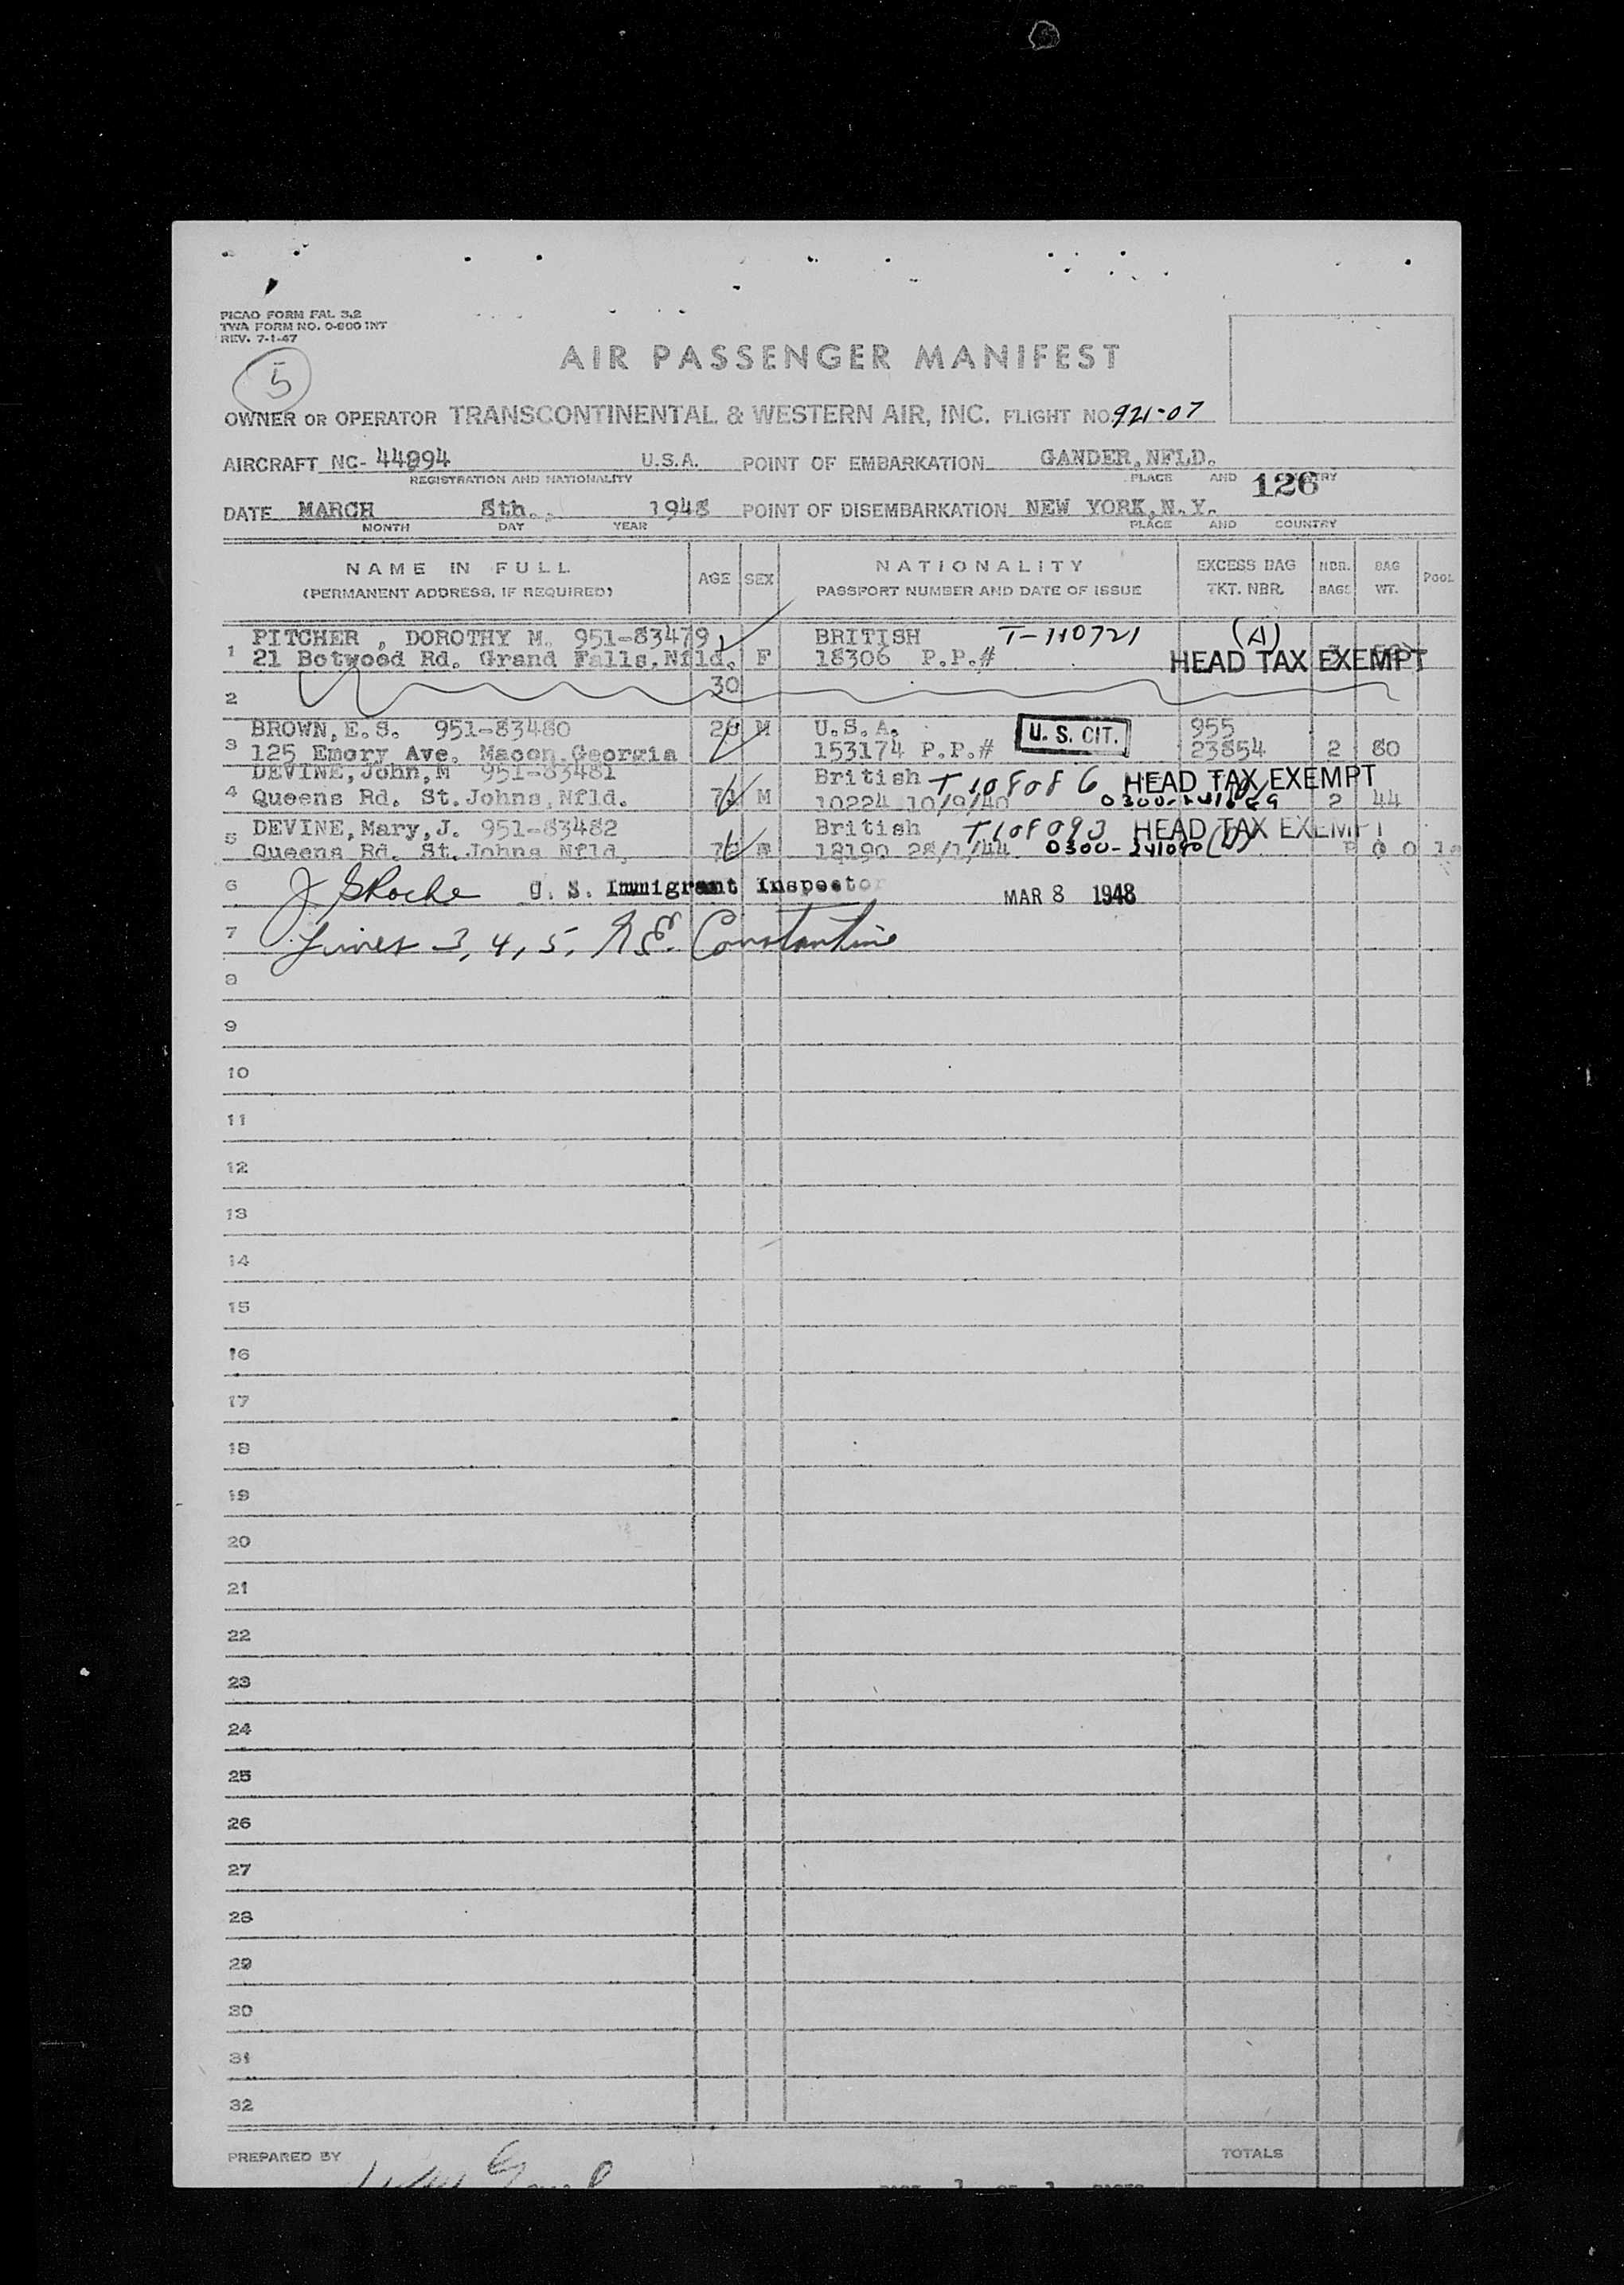 PICAO FORM FAL 3.2
TWA FORM NO. 0-800 INT
REV. 7-1-47
5
AIR PASSENGER MANIFEST
OWNER OR OPERATOR TRANSCONTINENTAL & WESTERN AIR, INC. FLIGHT NO. 921-07
AIRCRAFT NC- 44894 U.S.A. POINT OF EMBARKATION GANDER, NFLD.
REGISTRATION AND NATIONALITY PLACE AND 126
DATE MARCH 8th., 1948 POINT OF DISEMBARKATION NEW YORK, N.Y.
MONTH DAY YEAR PLACE AND COUNTRY
NAME IN FULL AGE SEX NATIONALITY EXCESS BAG NBR. BAG POOL
(PERMANENT ADDRESS, IF REQUIRED) PASSPORT NUMBER AND DATE OF ISSUE TKT. NBR. BAGS WT.
1 PITCHER , DOROTHY M. 951-83479 BRITISH T-110721 (A)
21 Botwood Rd. Grand Falls, Nfld. F 18306 P.P.# HEAD TAX EXEMPT
2 30
3 BROWN, E.S. 951-83480 26 M U.S.A. U. S. CIT. 955
125 Emory Ave. Macon, Georgia 153174 P.P.# 23854 2 80
4 DEVINE, John, M 951-83481 British T 108086 HEAD TAX EXEMPT
Queens Rd. St. Johns, Nfld. M 10224 10/9/40 2 44
5 DEVINE, Mary, J. 951-83482 British T108093 HEAD TAX EXEMPT
Queens Rd. St. Johns Nfld. 18190 28/1/44 0300-241090
6 U. S. Immigrant Inspector MAR 8 1948
7 Lines 3, 4, 5. Constantine
8
9
10
11
12
13
14
15
16
17
18
19
20
21
22
23
24
25
26
27
28
29
30
31
32
PREPARED BY TOTALS